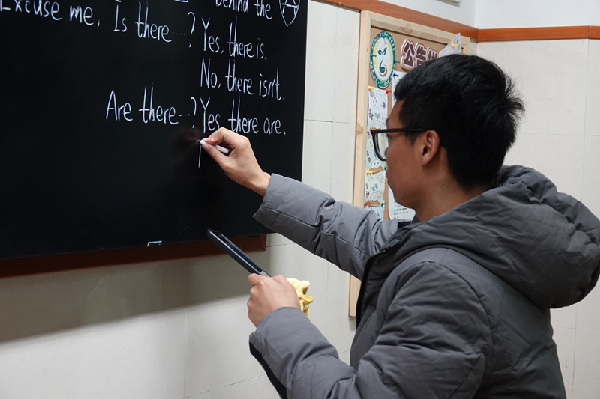 behind the
Excuse me. Is there ...? Yes, there is.
No, there isn't.
Are there ...? Yes, there are.
公告栏